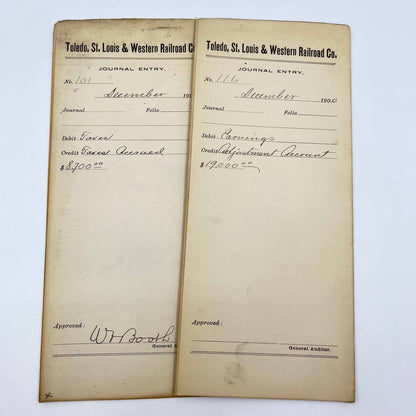 Toledo, St. Louis & Western Railroad Co
JOURNAL ENTRY.
No. 101
December 190
Journal Folio
Debit Taxes
Credit Taxes Accrued
$8,700.00
Approved:
W D Booth
General A
Toledo, St. Louis & Western Railroad Co.
JOURNAL ENTRY.
No. 116
December 1900
Journal Folio
Debit Earnings
Credit Adjustment Account
$19,000.00
Approved:
General Auditor.